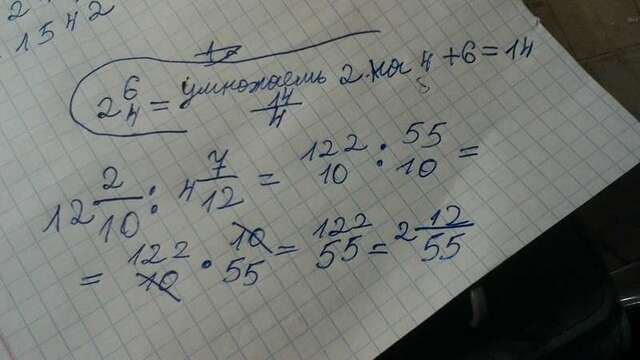 2 6/4 = умножаешь 2 на 4 + 6 = 14
14/4
12 2/10 : 4 7/12 = 122/10 : 55/10 =
= 122/10 · 10/55 = 122/55 = 2 12/55